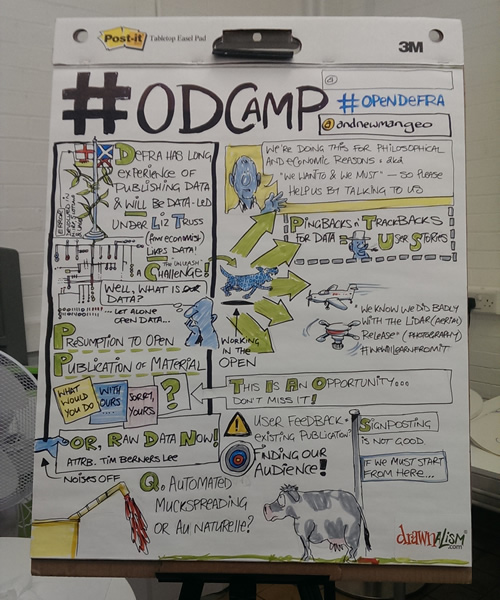 Post-it Tabletop Easel Pad
3M
#ODCAMP
@
#OPENDEFRA
@andnewmangeo
DEFRA HAS LONG
EXPERIENCE OF
PUBLISHING DATA
& WILL BE DATA-LED
UNDER LIZ TRUSS
(for economist)
LIKES DATA!
THE "UNLEASH"
CHALLENGE!
WELL, WHAT IS OUR
DATA?
... LET ALONE
OPEN DATA...
PRESUMPTION TO OPEN
PUBLICATION OF MATERIAL
WHAT
WOULD
YOU DO
WITH
OURS
SORRY,
YOURS
?
OR, RAW DATA NOW!
ATTRB. TIM BERNERS LEE
NOISES OFF
WE'RE DOING THIS FOR PHILOSOPHICAL
AND ECONOMIC REASONS • aka
"WE WANT TO & WE MUST" — SO PLEASE
HELP US BY TALKING TO US
PINGBACKS 'n' TRACKBACKS
FOR DATA = USER STORIES
WORKING
IN THE
OPEN
"WE KNOW WE DID BADLY
WITH THE LIDAR (AERIAL)
RELEASE" (PHOTOGRAPHY)
#WEWILLLEARNFROMIT
THIS IS AN OPPORTUNITY...
DON'T MISS IT!
USER FEEDBACK •
EXISTING PUBLICATION
FINDING OUR
AUDIENCE!
SIGNPOSTING
IS NOT GOOD.
IF WE MUST START
FROM HERE...
Q. AUTOMATED
MUCKSPREADING
OR AU NATURELLE?
drawnalism
.com